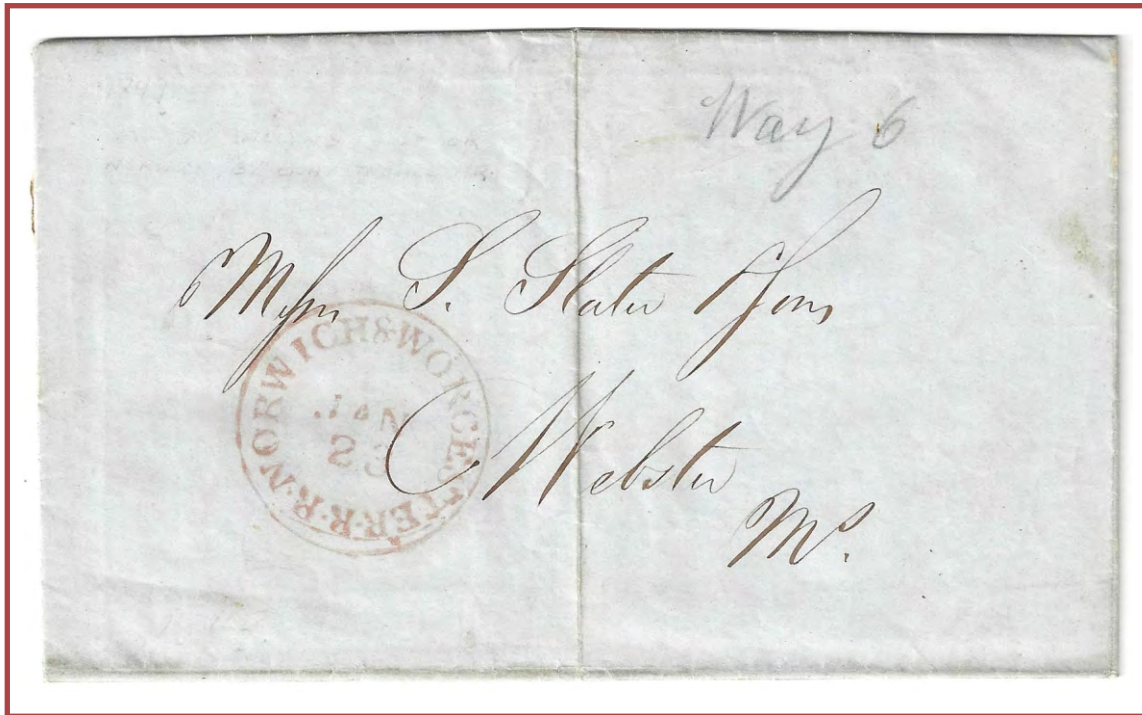 Way 6
Messrs S. Slater & Sons
Webster
Ms.
NORWICH & WORCESTER. R. R.
JAN